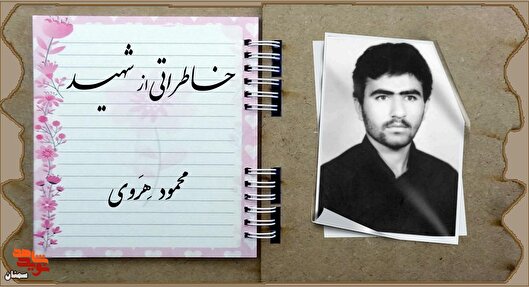 خاطراتی از شهید
محمود هِرَوی
نوید شاهد
سمنان